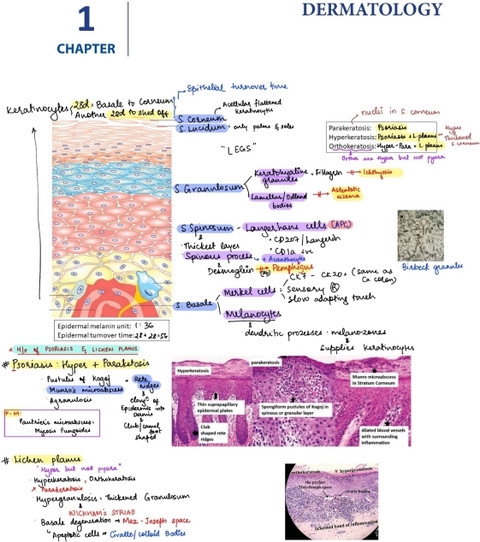 1
CHAPTER
DERMATOLOGY
Keratinocytes
28d: Basale to Corneum
Another 28d to shed off
Epithelial turnover time
S. Corneum
Acellular flattened keratinocytes
S. Lucidum → only palms & soles
"LEGS"
nuclei in S. corneum
Parakeratosis: Psoriasis
Hyperkeratosis: Psoriasis + L. planus
Orthokeratosis: Hyper - Para = L. planus
Hyper
Thickened
S corneum
Ortho are hyper but not pyara
S. Granulosum
Keratohyaline granules
Ichthyosis
Lamellar/Odland bodies
S. Spinosum
Langerhans cells (APC)
Thickest layer
• CD207/Langerin
• CD1a +ve
Spinous process
Acanthocytes
Desmoglein
Pemphigus
CK7 - CK20+ (same as Ca colon)
Birbeck granules
S. Basale
Merkel cells
Sensory
Slow adapting touch
Melanocytes
dendritic processes: melanosomes
supplies keratinocytes
Epidermal melanin unit: 1:36
Epidermal turnover time: 28+28=56
H/o of PSORIASIS & LICHEN PLANUS
# Psoriasis: Hyper + Paraketosis
• Pustules of Kogoj
• Munro's microabscess
• Agranulosis
Rete ridges
Epidermis into Dermis
Club/camel foot shaped
P-M
Pautrier's microabscess
Mycosis Fungoides
Hyperkeratosis
parakeratosis
Munro microabscess
in Stratum Corneum
Thin suprapapillary
epidermal plates
Spongiform pustules of Kogoj in
spinous or granular layer
Club
shaped rete
ridges
dilated blood vessels
with surrounding
inflammation
# Lichen planus
"Hyper but not pyara"
Hyperkeratosis, Orthokeratosis
Parakeratosis
Hypergranulosis = Thickened Granulosum
WICKHAM'S STRIAE
• Basale degeneration → Max-Joseph space
"Apoptotic cells → Civatte/colloid Bodies
orthokeratosis
hypergranulosis
max-joseph space
lichenoid band of inflammation